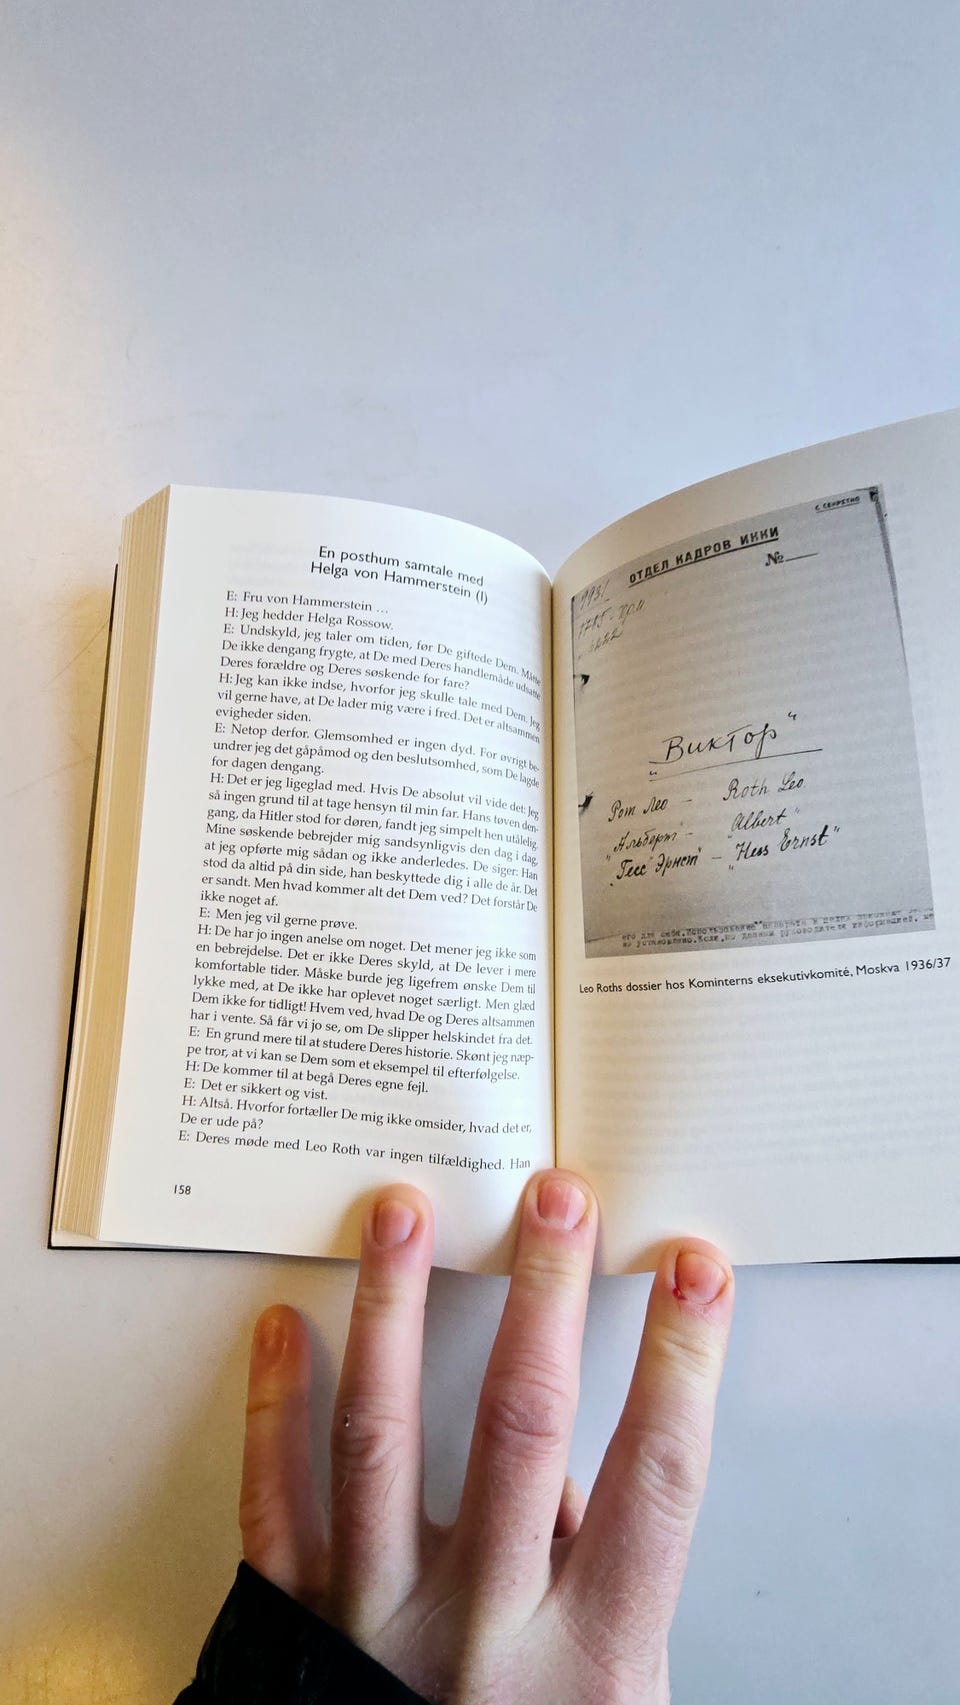 En posthum samtale med
Helga von Hammerstein (I)
E: Fru von Hammerstein …
H: Jeg hedder Helga Rossow.
E: Undskyld, jeg taler om tiden, før De giftede Dem. Måtte
De ikke dengang frygte, at De med Deres handlemåde udsatte
Deres forældre og Deres søskende for fare?
H: Jeg kan ikke indse, hvorfor jeg skulle tale med Dem. Jeg
vil gerne have, at De lader mig være i fred. Det er altsammen
evigheder siden.
E: Netop derfor. Glemsomhed er ingen dyd. For øvrigt be-
undrer jeg det gåpåmod og den beslutsomhed, som De lagde
for dagen dengang.
H: Det er jeg ligeglad med. Hvis De absolut vil vide det: Jeg
så ingen grund til at tage hensyn til min far. Hans tøven den-
gang, da Hitler stod for døren, fandt jeg simpelt hen utålelig.
Mine søskende bebrejder mig sandsynligvis den dag i dag,
at jeg opførte mig sådan og ikke anderledes. De siger: Han
stod da altid på din side, han beskyttede dig i alle de år. Det
er sandt. Men hvad kommer alt det Dem ved? Det forstår De
ikke noget af.
E: Men jeg vil gerne prøve.
H: De har jo ingen anelse om noget. Det mener jeg ikke som
en bebrejdelse. Det er ikke Deres skyld, at De lever i mere
komfortable tider. Måske burde jeg ligefrem ønske Dem til
lykke med, at De ikke har oplevet noget særligt. Men glæd
Dem ikke for tidligt! Hvem ved, hvad De og Deres altsammen
har i vente. Så får vi jo se, om De slipper helskindet fra det.
E: En grund mere til at studere Deres historie. Skønt jeg næp-
pe tror, at vi kan se Dem som et eksempel til efterfølgelse.
H: De kommer til at begå Deres egne fejl.
E: Det er sikkert og vist.
H: Altså. Hvorfor fortæller De mig ikke omsider, hvad det er,
De er ude på?
E: Deres møde med Leo Roth var ingen tilfældighed. Han
158
С. СЕКРЕТНО
ОТДЕЛ КАДРОВ ИККИ
№
"Виктор"
Рот Лео — Roth Leo
"Альберт" — "Albert"
"Гесс Эрнст" — "Hess Ernst"
Leo Roths dossier hos Kominterns eksekutivkomité, Moskva 1936/37